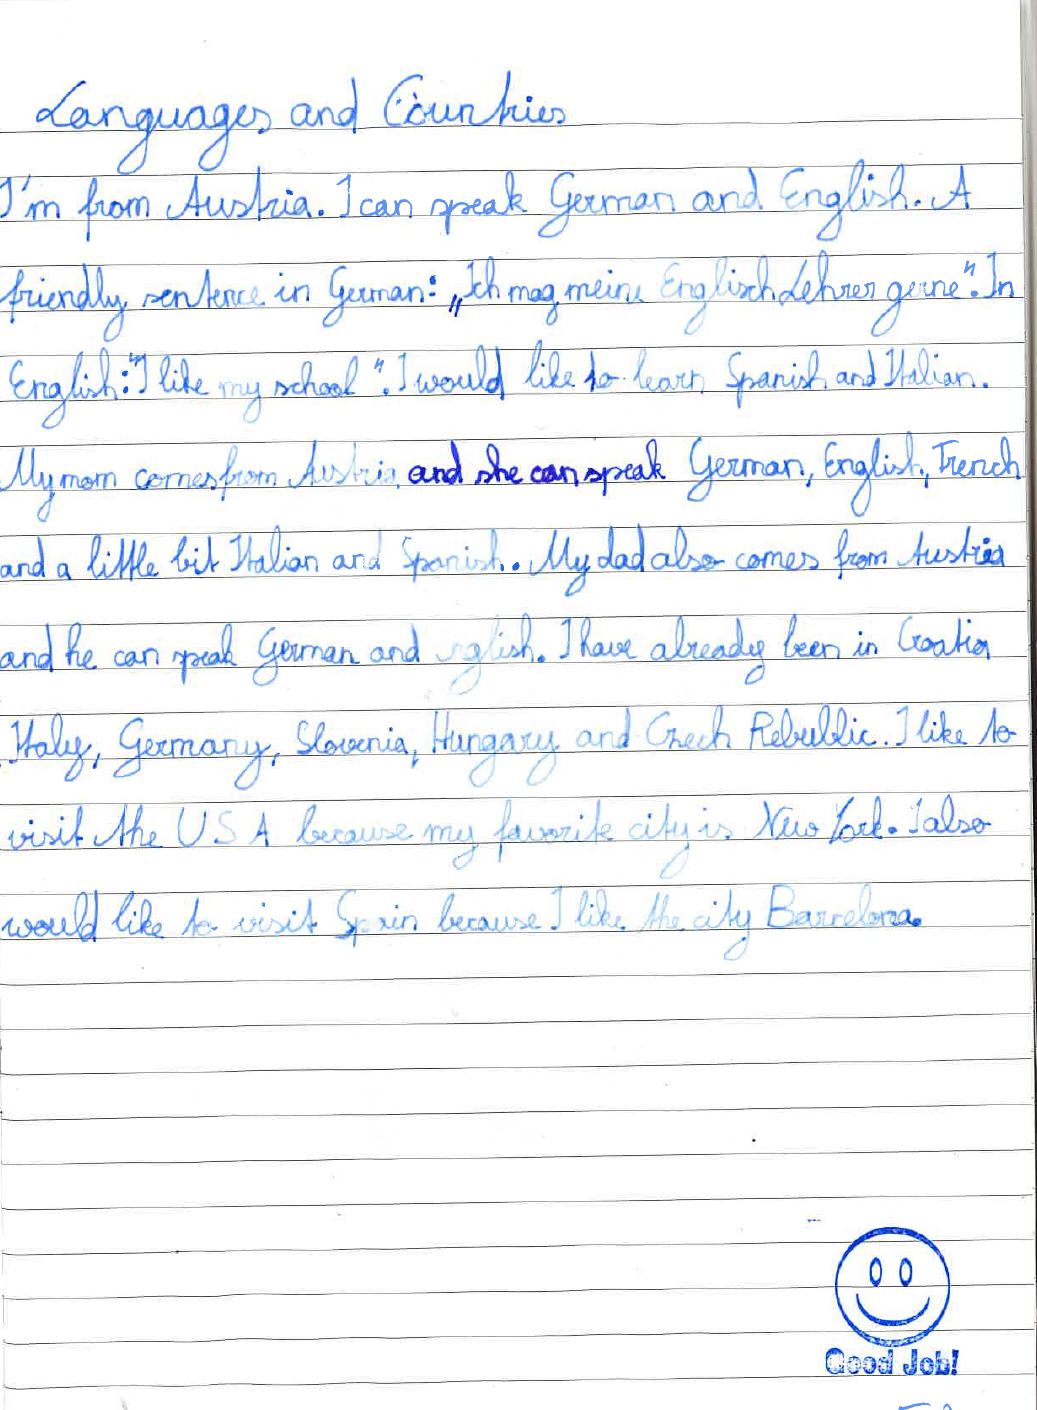 Languages and Countries
I'm from Austria. I can speak German and English. A
friendly sentence in German: „Ich mag meine Englisch Lehrer gerne". In
English: "I like my school". I would like to learn Spanish and Italian.
My mom comes from Austria and she can speak German, English, French
and a little bit Italian and Spanish. My dad also comes from Austria
and he can speak German and nglish. I have already been in Croatia
Italy, Germany, Slovenia, Hungary and Czech Rebublic. I like to
visit the USA because my favorite city is New York. I also
would like to visit Spain because I like the city Barcelona.
Good Job!